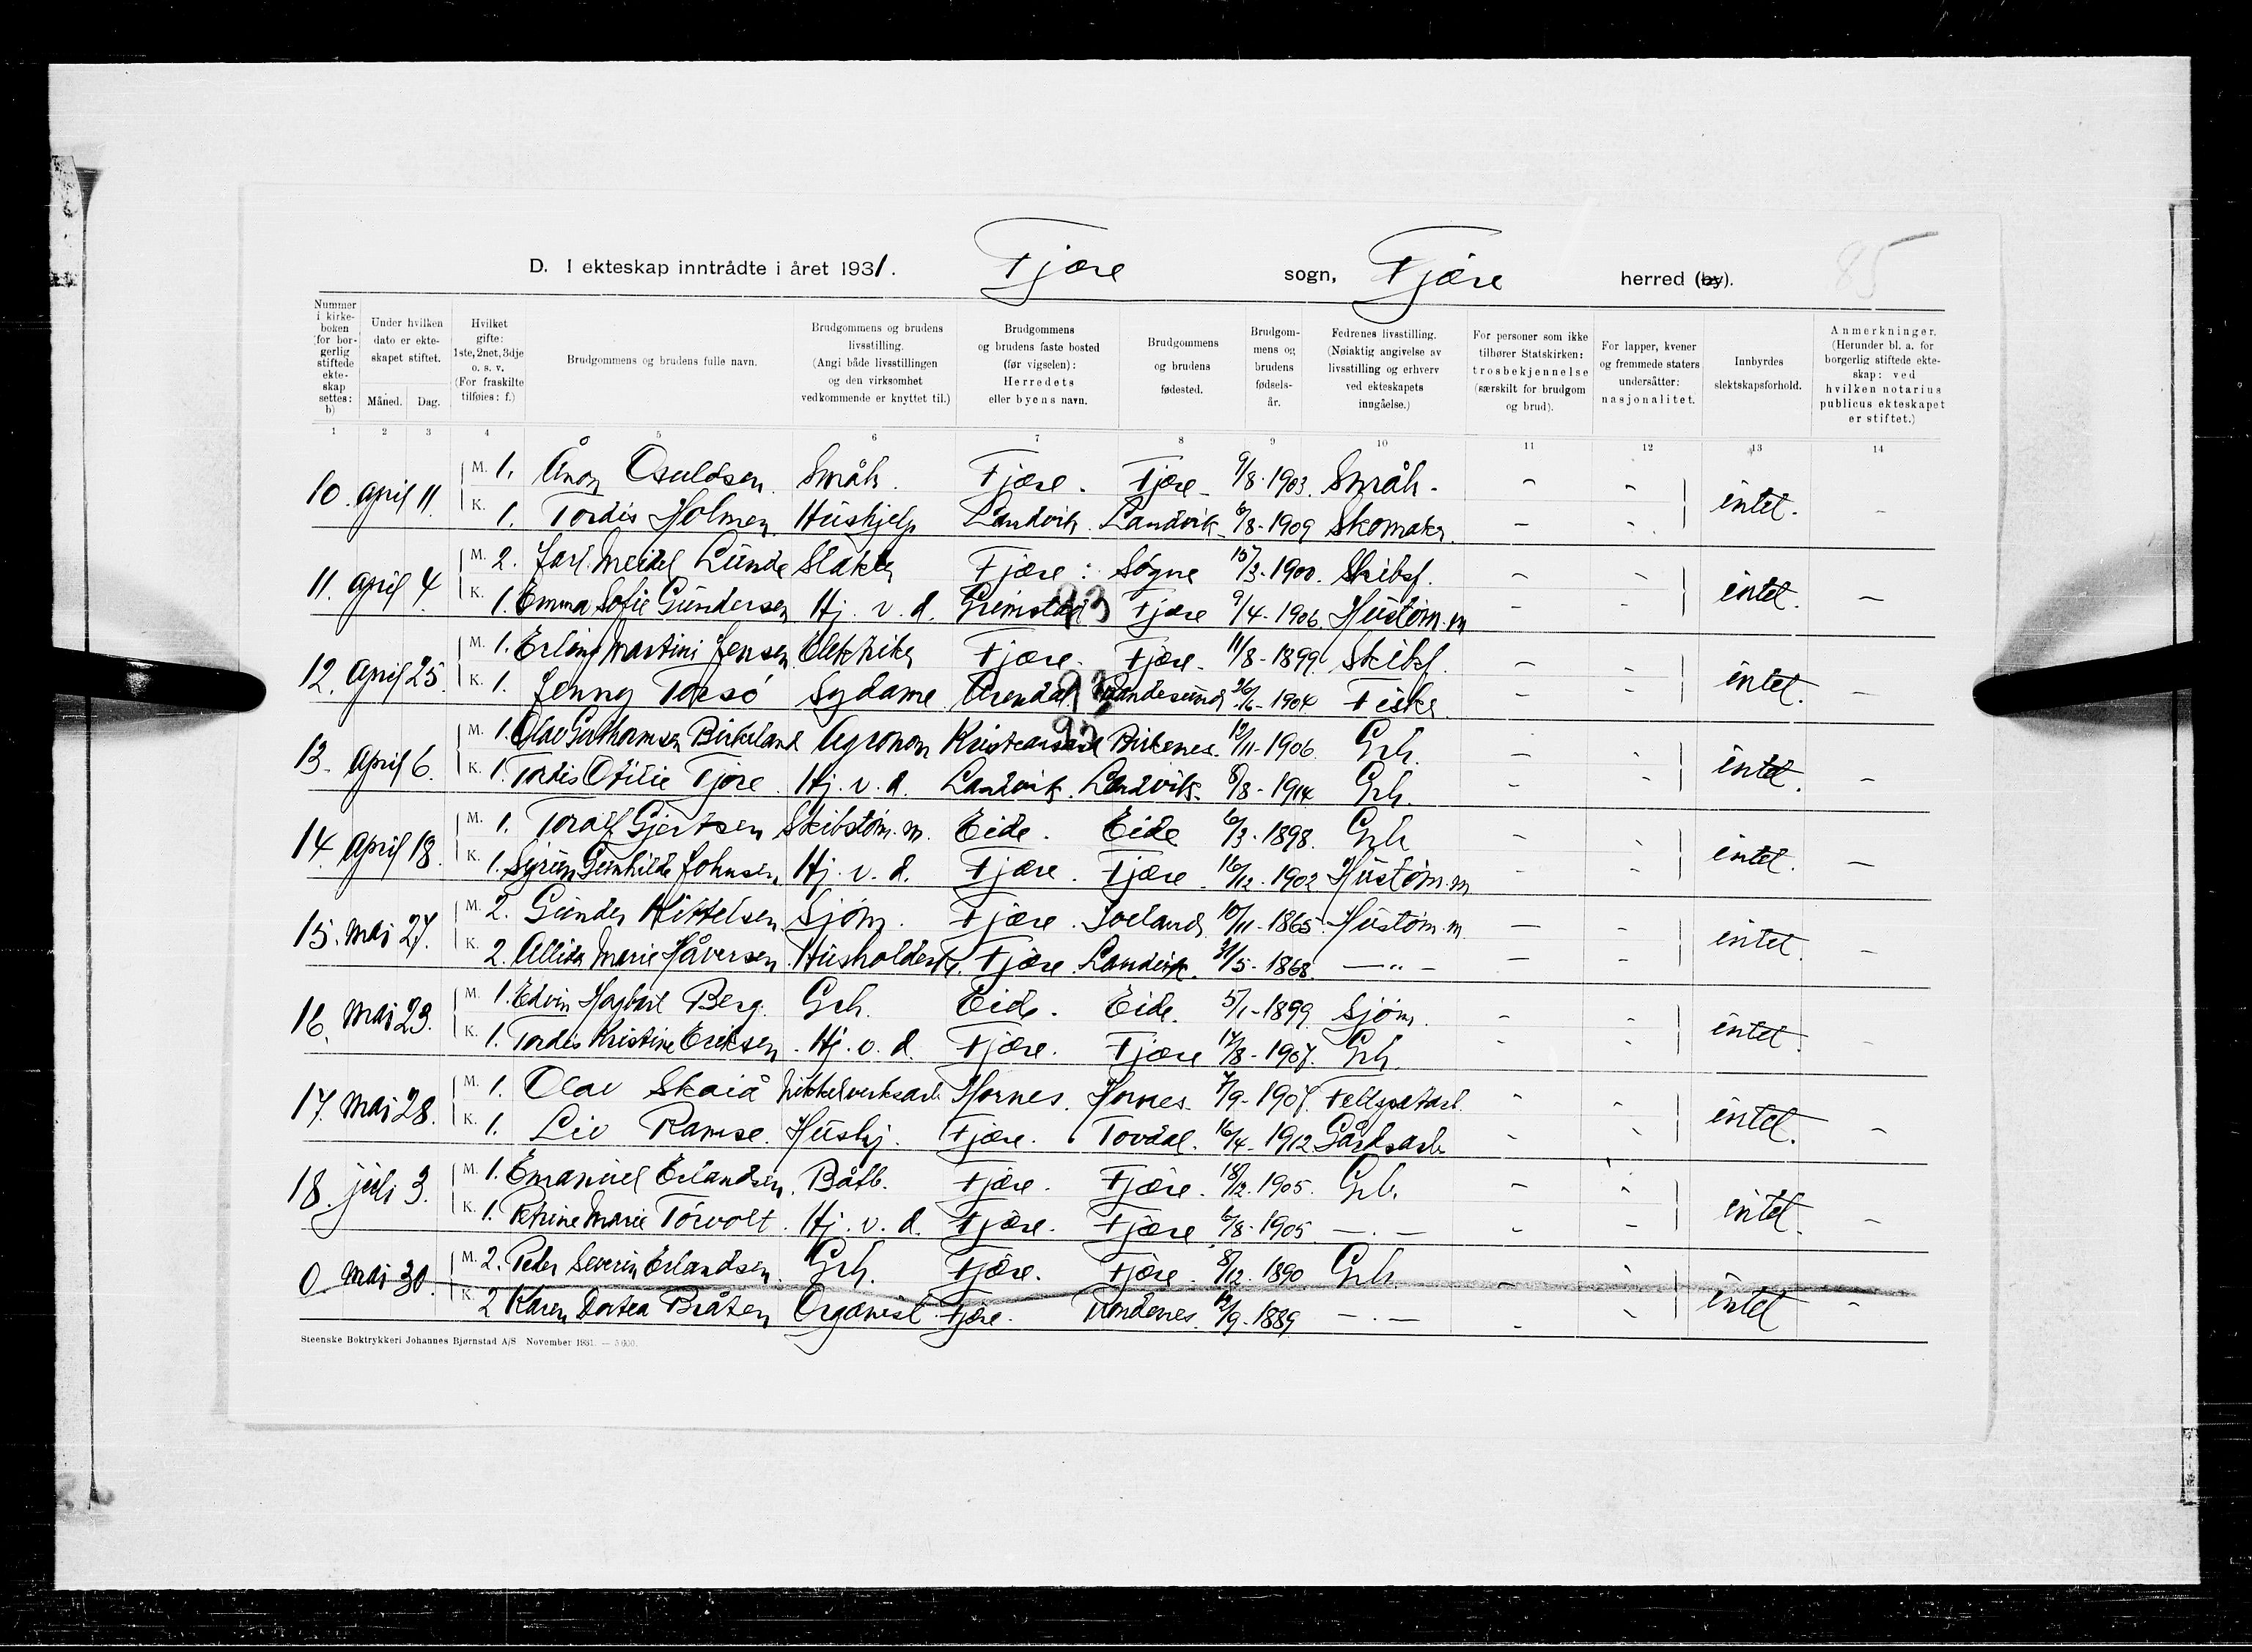 85
D. I ekteskap inntrådte i året 1931. Fjære sogn, Fjære herred (by).
Nummer i kirkeboken (for borgerlig stiftede ekteskap settes: b)
Under hvilken dato er ekteskapet stiftet.
Måned. Dag.
Hvilket gifte: 1ste, 2net, 3dje o. s. v. (For fraskilte tilføies: f.)
Brudgommens og brudens fulle navn.
Brudgommens og brudens livsstilling. (Angi både livsstillingen og den virksomhet vedkommende er knyttet til.)
Brudgommens og brudens faste bosted (før vigselen): Herredets eller byens navn.
Brudgommens og brudens fødested.
Brudgommens og brudens fødselsår.
Fedrenes livsstilling. (Nøiaktig angivelse av livsstilling og erhverv ved ekteskapets inngåelse.)
For personer som ikke tilhører Statskirken: trosbekjennelse (særskilt for brudgom og brud).
For lapper, kvener og fremmede staters undersåtter: nasjonalitet.
Innbyrdes slektskapsforhold.
Anmerkninger. (Herunder bl. a. for borgerlig stiftede ekteskap: ved hvilken notarius publicus ekteskapet er stiftet.)
1 2 3 4 5 6 7 8 9 10 11 12 13 14
10. april 11. M. 1. Ånon Osuldsen. Småb. Fjære. Fjære 9/8. 1903. Småb. - - intet. -
K. 1. Tordis Holmen. Hushjelp Landvik. Landvik 6/8 - 1909 Skomaker. - -
11. april 4. M. 2. Jarl Meidel Lunde Slakter Fjære: Søgne 15/3 - 1900. Skibsf. - - intet. -
K. 1. Emma Sofie Gundersen Hj. v. d. Grimstad 93 Fjære 9/4 - 1906. Hustøm. m - -
12. april 25. M. 1. Erling Martini Jensen. Elektriker Fjære. Fjære. 11/8 - 1899. Skibsf. - - intet. -
K. 1. Jenny Torsø Sydame Arendal. 26/6 - 1904 Fisker. - -
13. april 6. M. 1. Olav Guthormsen Birkeland Agronom Kristiansand Birkenes. 12/11 - 1906 Grb. - - intet. -
K. 1. Tordis Otilie Fjære. Hj. v. d. Landvik. Landvik. 8/8 - 1914 Grb. - -
14. april 18. M. 1. Toralf Gjertsen Skibstøm. m. Eide. Eide 6/3 - 1898. Grb - - intet. -
K. 1. Sigrun Gunhilde Johnsen Hj. v. d. Fjære. Fjære. 16/12 - 1902 Hustøm. m - -
15. mai 27. M. 2. Gunder Kittelsen. Sjøm. Fjære. Iveland. 10/11 - 1865. Hustøm. m. - - intet. -
K. 2. Allida Marie Håversen. Husholderske. Fjære. Landvik. 31/5 - 1868. - " - - -
16. mai 23. M. 1. Edvin Hagbart Berg. Grb. Eide. Eide. 5/1 - 1899. Sjøm. - - intet. -
K. 1. Tordis Kristine Eriksen. Hj. v. d. Fjære. Fjære 17/8 - 1907. Grb. - -
17. mai 28. M. 1. Olav Skaiå Nikkelverksarb. Hornes. Hornes. 7/9 - 1907. Feltspatarb. - - intet. -
K. 1. Liv Ramse. Hushj. Fjære. Tovdal. 16/4 - 1912. Gårdsarb. - -
18. juli 3. M. 1. Emanuel Erlandsen. Båtb. Fjære. Fjære. 18/12. 1905. Grb. - - intet. -
K. 1. Petrine Marie Torvolt. Hj. v. d. Fjære. Fjære. 6/8 - 1905 - . - - -
0. mai 30. M. 2. Peder Severin Erlandsen. Grb. Fjære. Fjære. 8/12. 1890 Grb. - - intet -
K. 2 Karen Dortea Bråten Organist Fjære. Trondenes. 12/9 - 1889 - . - - -
Steenske Boktrykkeri Johannes Bjørnstad A/S November 1931. — 5 000.